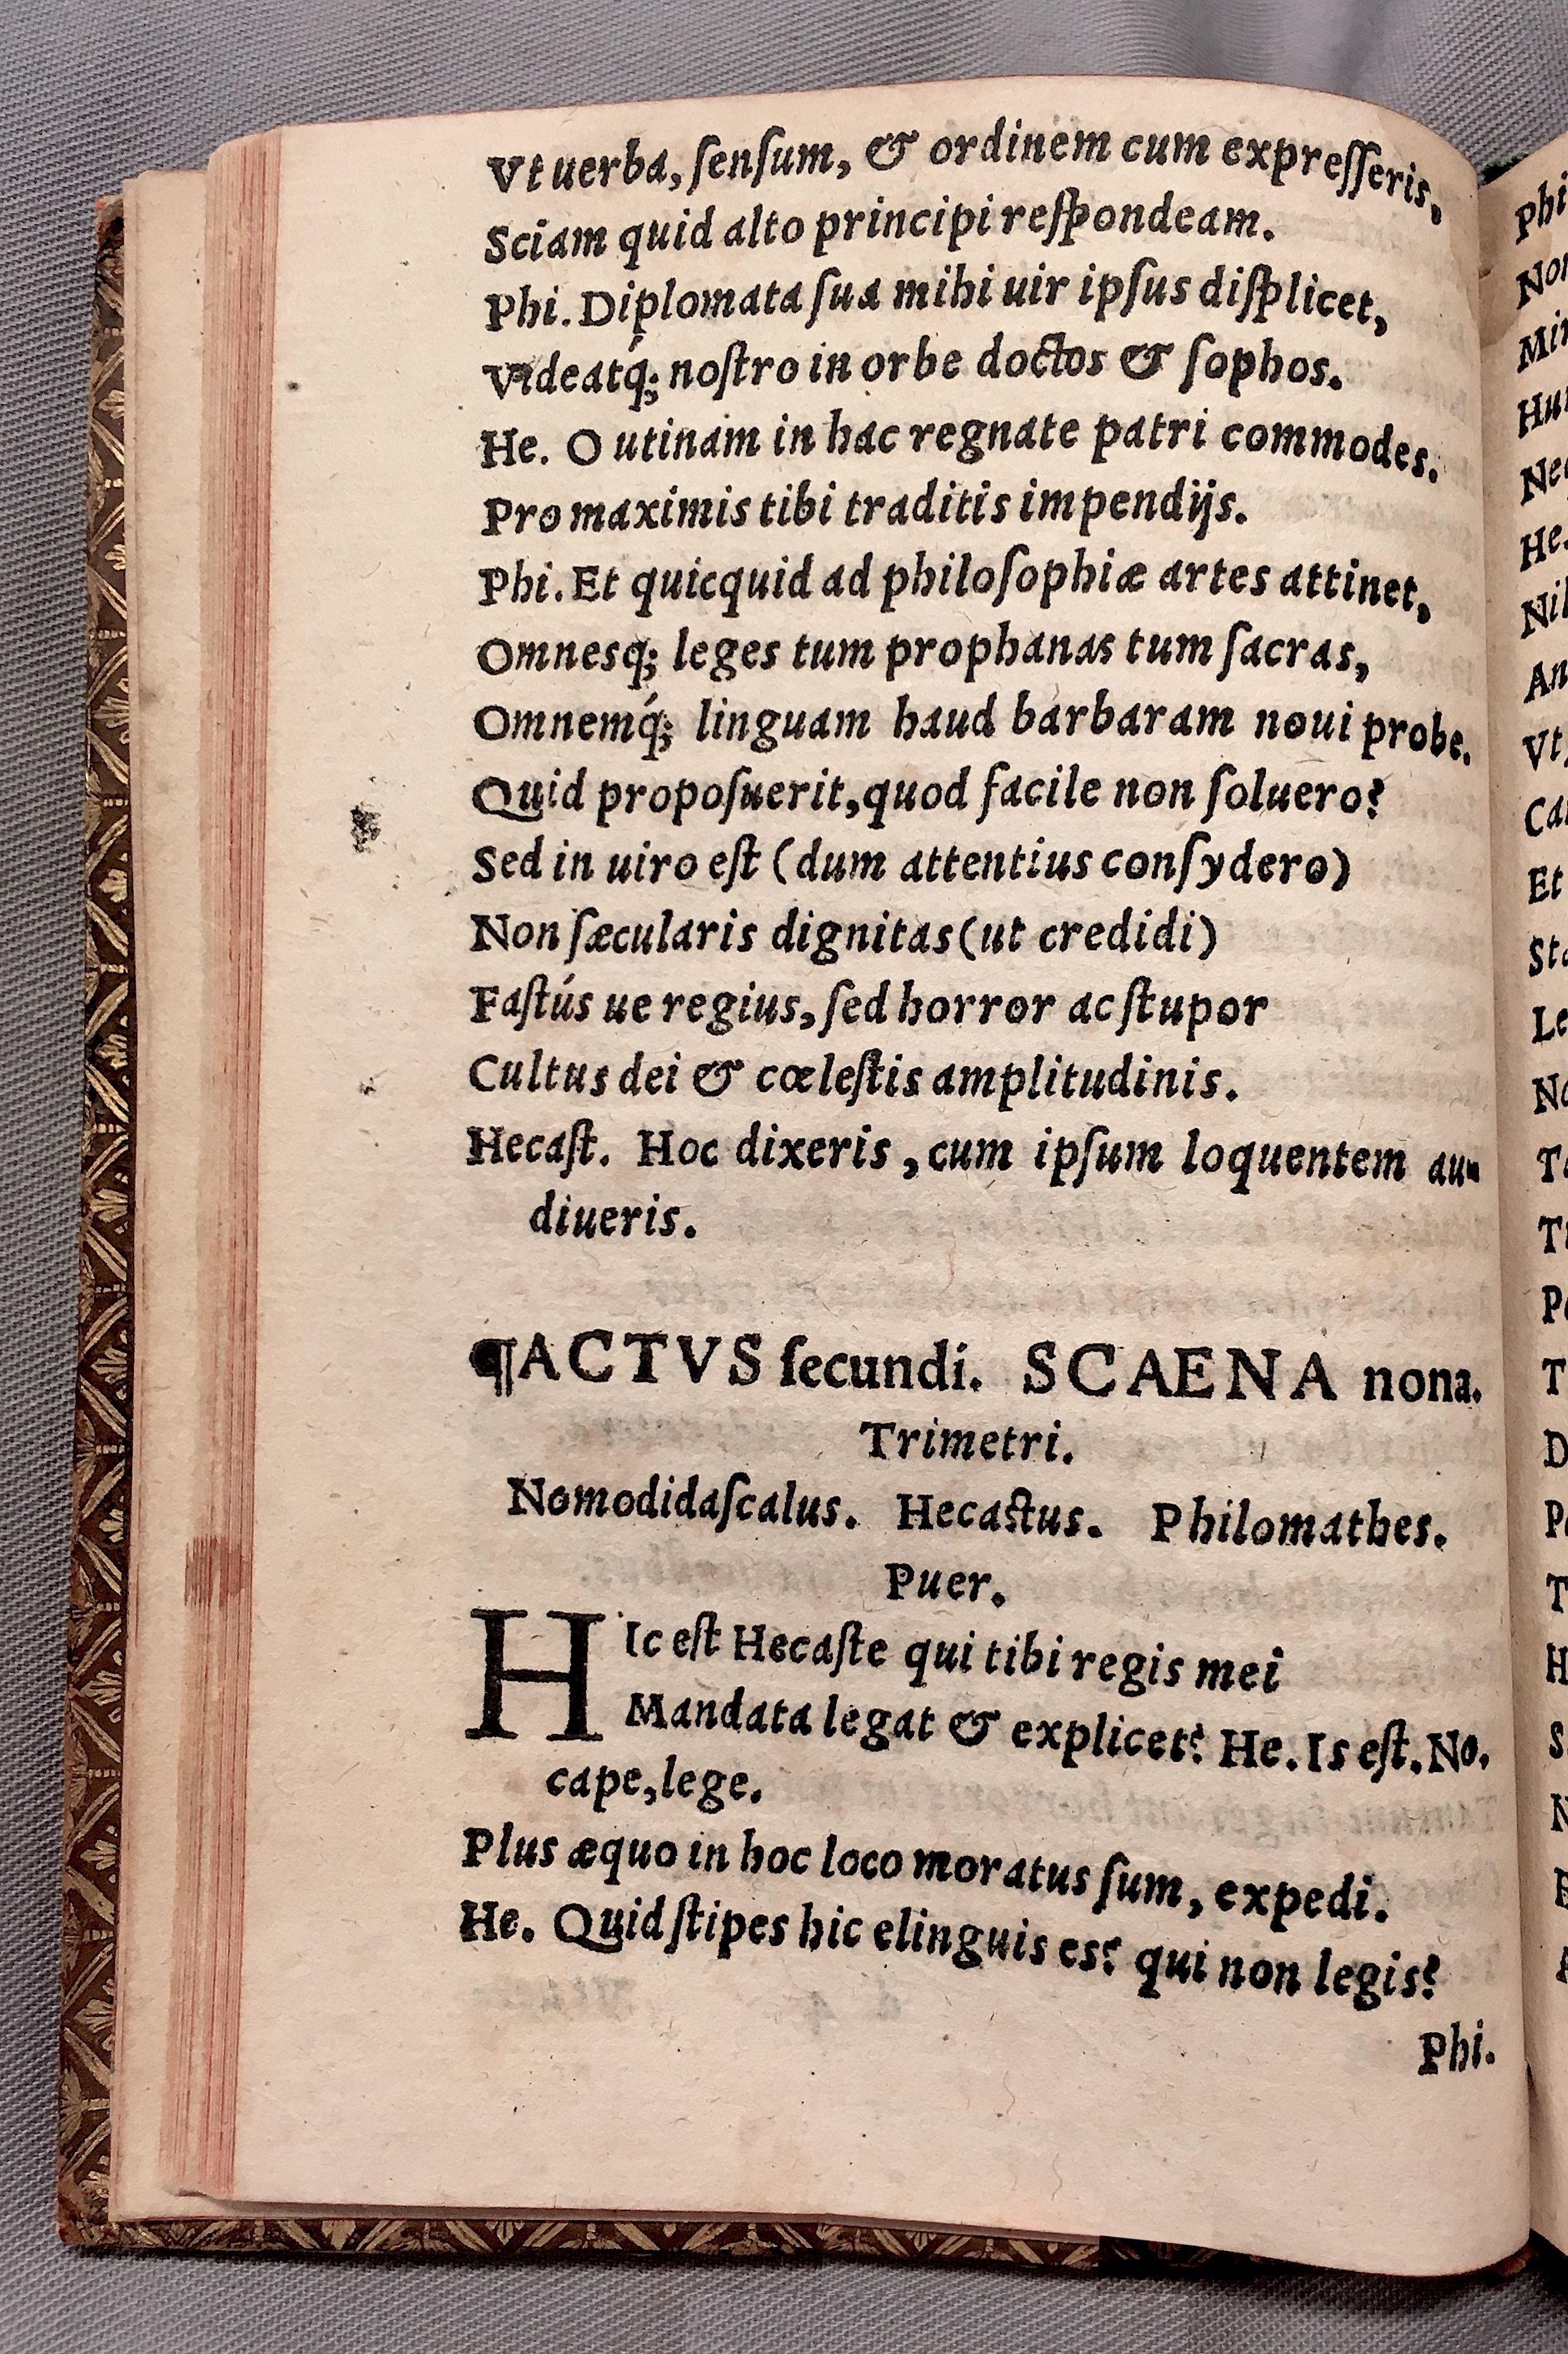 Vt uerba, ſenſum, & ordinem cum expreſſeris,
Sciam quid alto principi reſpondeam.
Phi. Diplomata ſua mihi uir ipſus diſplicet,
Videatq́; noſtro in orbe doctos & ſophos.
He. O utinam in hac regnate patri commodes.
Pro maximis tibi traditis impendijs.
Phi. Et quicquid ad philoſophiæ artes attinet,
Omnesq; leges tum prophanas tum ſacras,
Omnemq́; linguam haud barbaram noui probe.
Quid propoſuerit, quod facile non ſoluero?
Sed in uiro eſt (dum attentius conſydero)
Non ſæcularis dignitas (ut credidi)
Faſtús ue regius, ſed horror ac ſtupor
Cultus dei & cœleſtis amplitudinis.
Hecaſt. Hoc dixeris, cum ipſum loquentem au-
diueris.
¶ACTVS ſecundi. SCAENA nona.
Trimetri.
Nomodidaſcalus. Hecaſtus. Philomathes.
Puer.
HIc eſt Hecaſte qui tibi regis mei
Mandata legat & explicet? He. Is eſt. No.
cape, lege.
Plus æquo in hoc loco moratus ſum, expedi.
He. Quid ſtipes hic elinguis es? qui non legis?
Phi.
Phi
Hu
He.
An
Vt
Et
Le